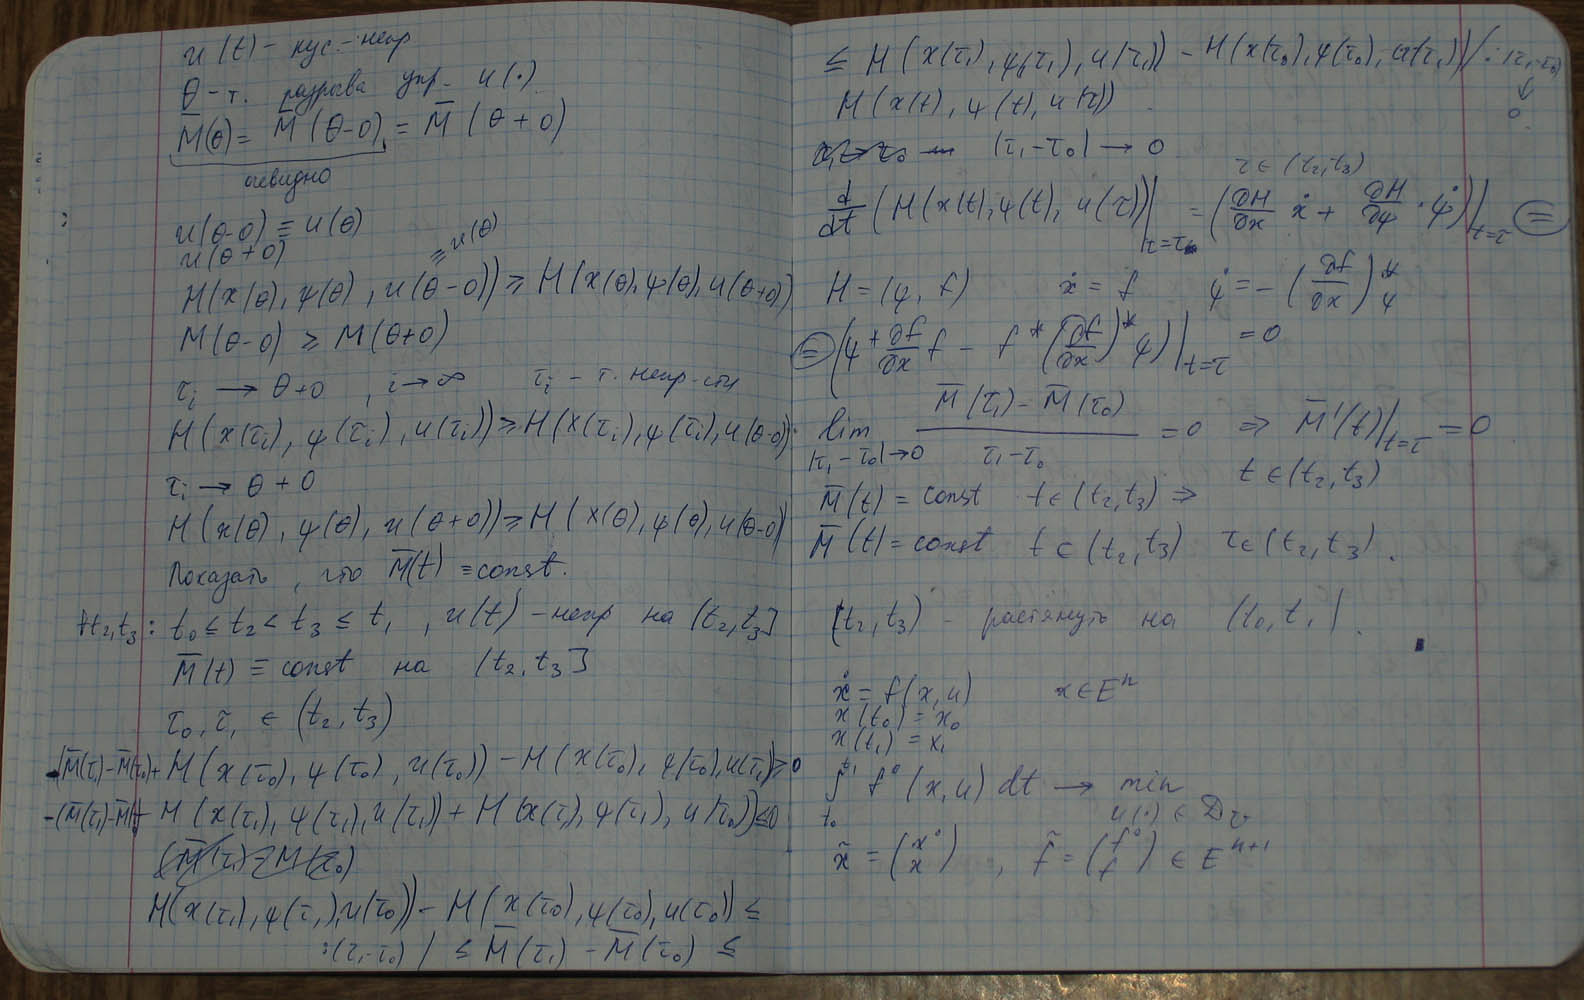 u(t) – кус.-непр
θ – т. разрыва упр. u(·)
M̅(θ) = M̅(θ-0) = M̅(θ+0)
очевидно
u(θ-0) ≡ u(θ)
u(θ+0)
≡ u(θ)
H(x(θ), ψ(θ), u(θ-0)) ≥ H(x(θ), ψ(θ), u(θ+0))
M(θ-0) ≥ M(θ+0)
τᵢ → θ+0, i→∞ τᵢ – т. непр-сти
H(x(τᵢ), ψ(τᵢ), u(τᵢ)) ≥ H(x(τᵢ), ψ(τᵢ), u(θ-0))
τᵢ → θ+0
H(x(θ), ψ(θ), u(θ+0)) ≥ H(x(θ), ψ(θ), u(θ-0))
Показать, что M̅(t) ≡ const.
∀t₂,t₃: t₀ ≤ t₂ < t₃ ≤ t₁, u(t) – непр на (t₂,t₃]
M̅(t) ≡ const на (t₂,t₃]
τ₀, τ₁ ∈ (t₂,t₃)
-(M̅(τ₁)-M̅(τ₀)) + H(x(τ₀), ψ(τ₀), u(τ₀)) – H(x(τ₀), ψ(τ₀), u(τ₁)) ≥ 0
-(M̅(τ₁)-M̅( + H(x(τ₁), ψ(τ₁), u(τ₁)) + H(x(τ₁), ψ(τ₁), u(τ₀)) ≤ 0
(M̅(τ₁) – M(τ₀)
H(x(τ₁), ψ(τ₁), u(τ₀)) – H(x(τ₀), ψ(τ₀), u(τ₀)) ≤
:(τ₁-τ₀) / ≤ M̅(τ₁) – M̅(τ₀) ≤
≤ H(x(τ₁), ψ(τ₁), u(τ₁)) – H(x(τ₀), ψ(τ₀), u(τ₁)) / :(τ₁-τ₀)
↓
0
H(x(t), ψ(t), u(τ))
|τ₁-τ₀| → 0
τ ∈ (t₂,t₃)
d/dt (H(x(t), ψ(t), u(τ))|τ=τ₀ = (∂H/∂x ẋ + ∂H/∂ψ · ψ̇)|t=τ =
H = (ψ, f) ẋ = f ψ̇ = -(∂f/∂x)* ψ
= (ψ* ∂f/∂x f – f* (∂f/∂x)* ψ)|t=τ = 0
lim |τ₁-τ₀|→0 (M̅(τ₁) – M̅(τ₀))/(τ₁-τ₀) = 0 ⇒ M̅'(t)|t=τ = 0
t ∈ (t₂,t₃)
M̅(t) = const t ∈ (t₂,t₃) ⇒
M̅(t) = const t ∈ (t₂,t₃) τ ∈ (t₂,t₃).
(t₂,t₃) – растянуть на (t₀,t₁).
ẋ = f(x,u) x ∈ Eⁿ
x(t₀) = x₀
x(t₁) = x₁
∫t₀^t₁ f⁰(x,u) dt → min
u(·) ∈ D
x̃ = (x⁰ x), f̃ = (f⁰ f) ∈ Eⁿ⁺¹